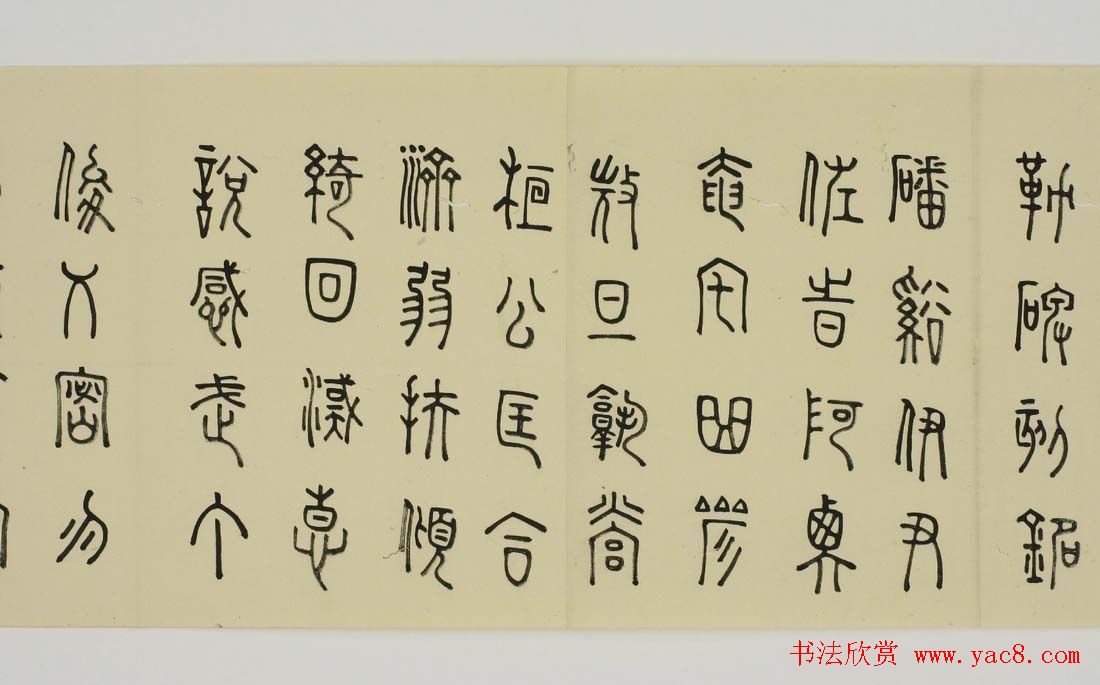 勒碑刻銘
磻谿伊尹
佐旹阿衡
奄宅曲阜
𢼸旦孰營
桓公匡合
濟弱扶傾
綺回漢惠
說感武丁
俊乂密勿
书法欣赏 www.yac8.com